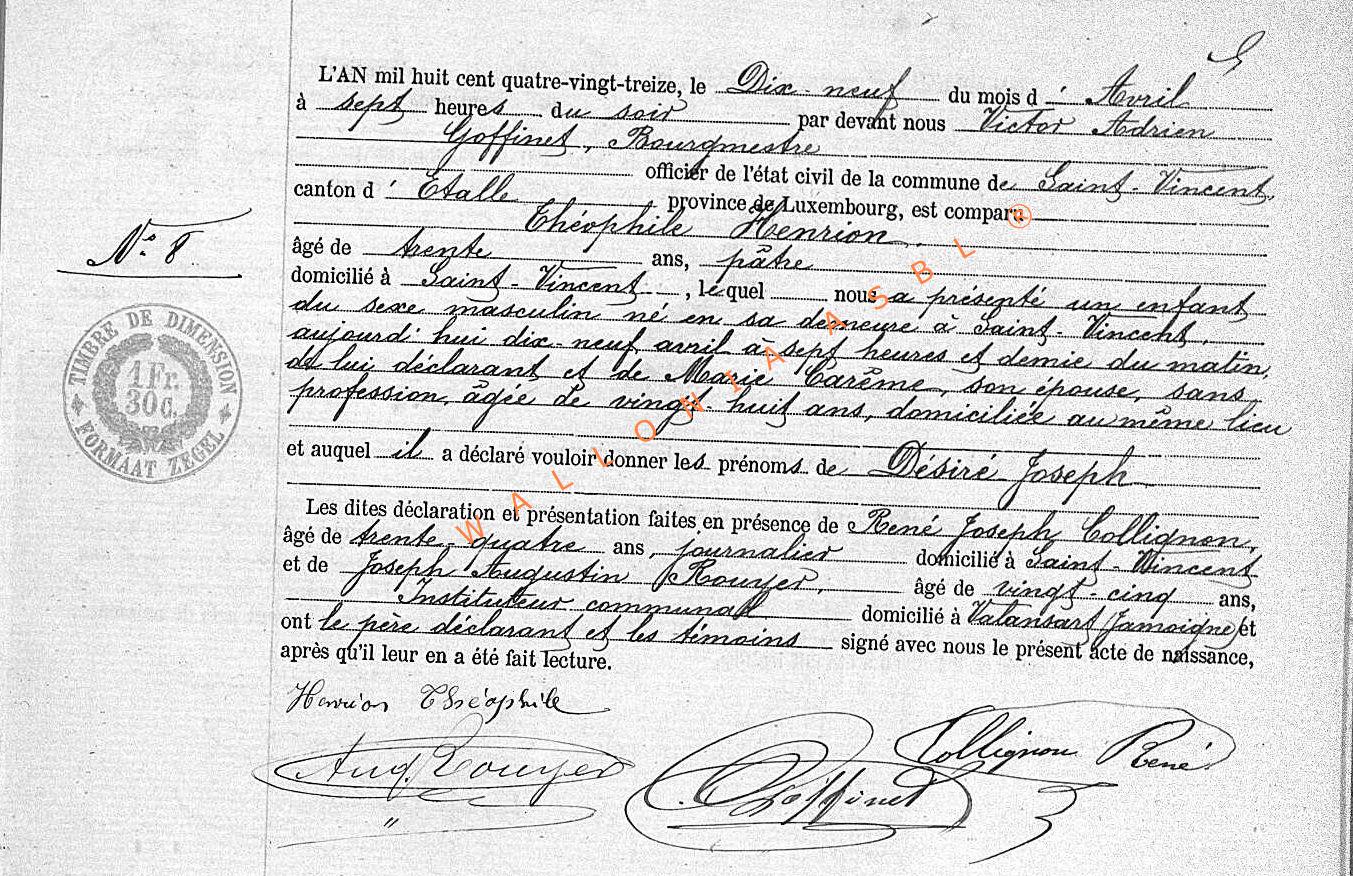 L'AN mil huit cent quatre-vingt-treize, le Dix-neuf du mois d' Avril
à sept heures du soir par devant nous Victor Adrien
Goffinet, Bourgmestre
officier de l'état civil de la commune de Saint-Vincent,
canton d' Etalle province de Luxembourg, est comparu
Théophile Henrion,
âgé de trente ans, pâtre
domicilié à Saint-Vincent, lequel nous a présenté un enfant
du sexe masculin né en sa demeure à Saint-Vincent,
aujourd'hui dix-neuf avril à sept heures et demie du matin,
de lui déclarant et de Marie Carême, son épouse, sans
profession, âgée de vingt-huit ans, domiciliée au même lieu
et auquel il a déclaré vouloir donner les prénoms de Désiré Joseph
Les dites déclaration et présentation faites en présence de René Joseph Collignon,
âgé de trente-quatre ans, journalier domicilié à Saint-Vincent
et de Joseph Augustin Rouyer, âgé de vingt-cinq ans,
Instituteur communal domicilié à Valansart (Jamoigne) et
ont le père déclarant et les témoins signé avec nous le présent acte de naissance,
après qu'il leur en a été fait lecture.
Henrion Théophile
Collignon René
Aug. Rouyer
Goffinet
N° 8
TIMBRE DE DIMENSION
1 Fr.
30 C.
FORMAAT ZEGEL
WALLONIA ASBL ®